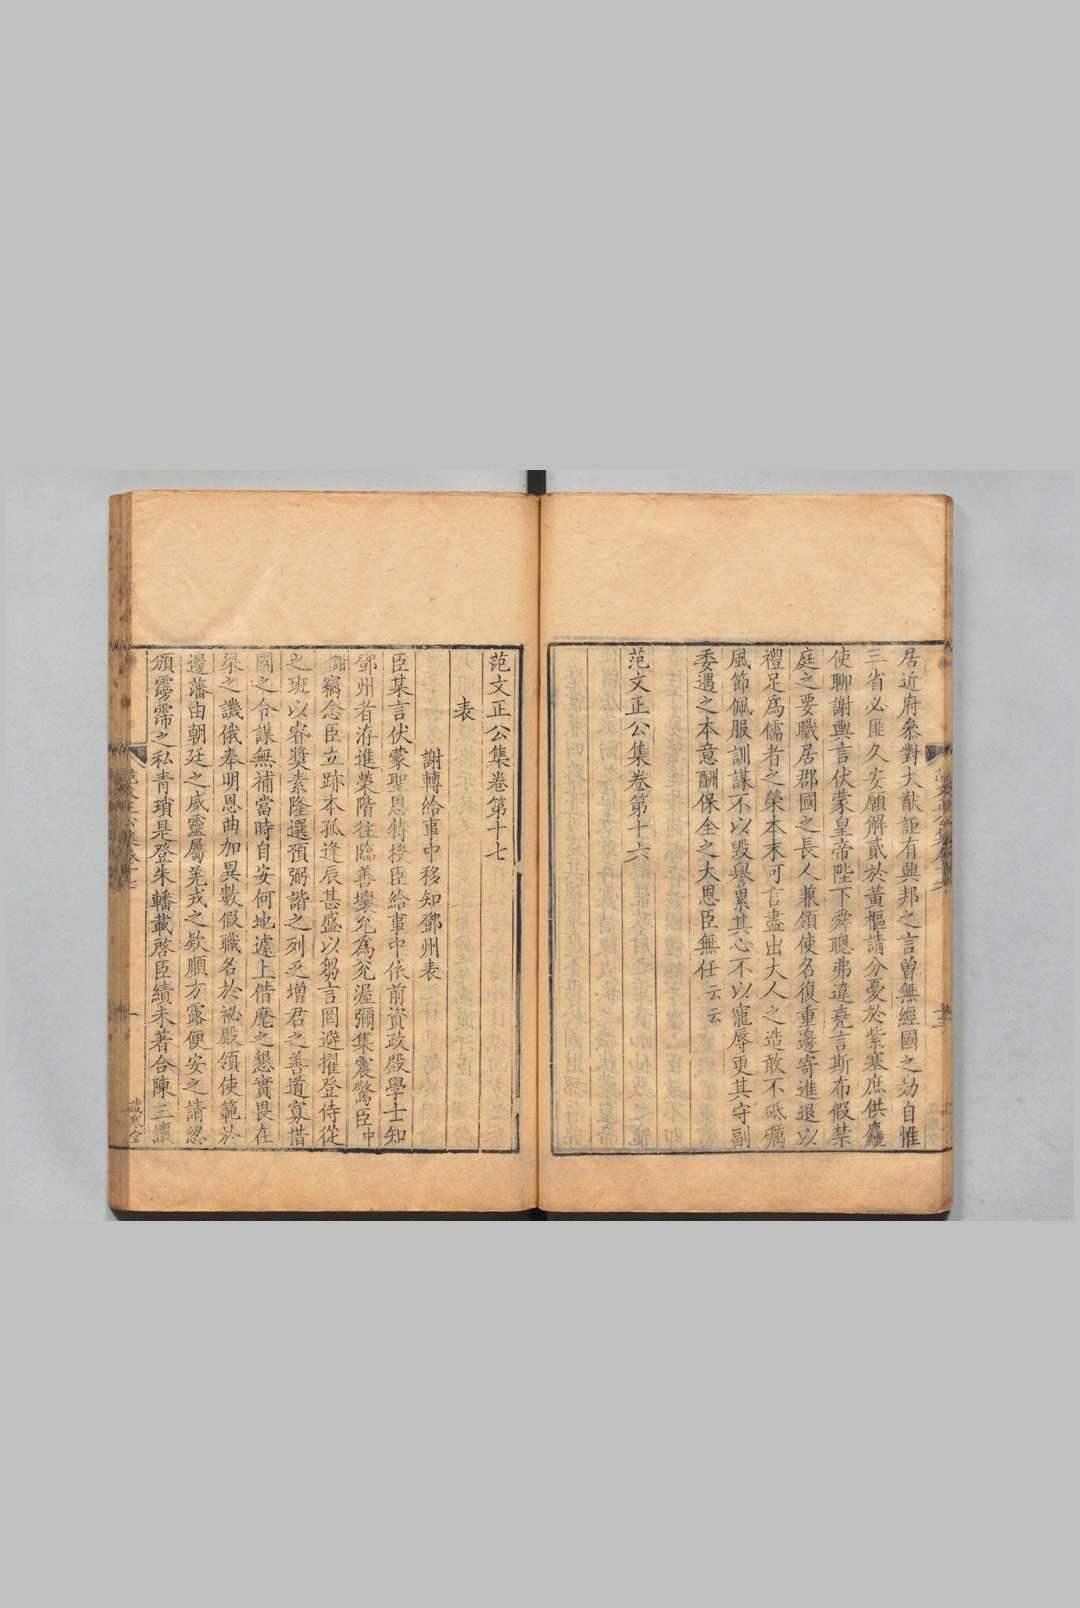 居近府叅對大猷詎有興邦之言曽無經國之効自惟
三省必匪久安願解貳於黃樞請分憂於紫塞庶供麤
使聊謝輿言伏蒙皇帝陛下舜聰弗違堯言斯布假禁
庭之要職居郡國之長人兼領使名復重邊寄進退以
禮足爲儒者之榮本末可言盡出大人之造敢不砥礪
風節佩服訓謀不以毀譽累其心不以寵辱更其守副
委遇之本意酬保全之大恩臣無任云云
范文正公集卷第十六
范文正公集卷第十七
表
謝轉給事中移知鄧州表
臣某言伏蒙聖恩特授臣給事中依前資政殿學士知
鄧州者洊進榮階往臨善壤允爲兖渥彌集震驚臣中
謝竊念臣立跡本孤逢辰甚盛以芻言罔避擢登侍從
之班以容奬素隆選預弼諧之列乏增君之善道寡措
國之令謀無補當時自安何地遽上偕麾之懇實畏在
梁之譏俄奉明恩曲加異數假職名於祕殿領使範於
邊藩由朝廷之威靈屬羌戎之欵順方露便安之請忽
頒霶霈之私青瑣是登朱轓載啓臣績未著合陳三讓
歲寒堂